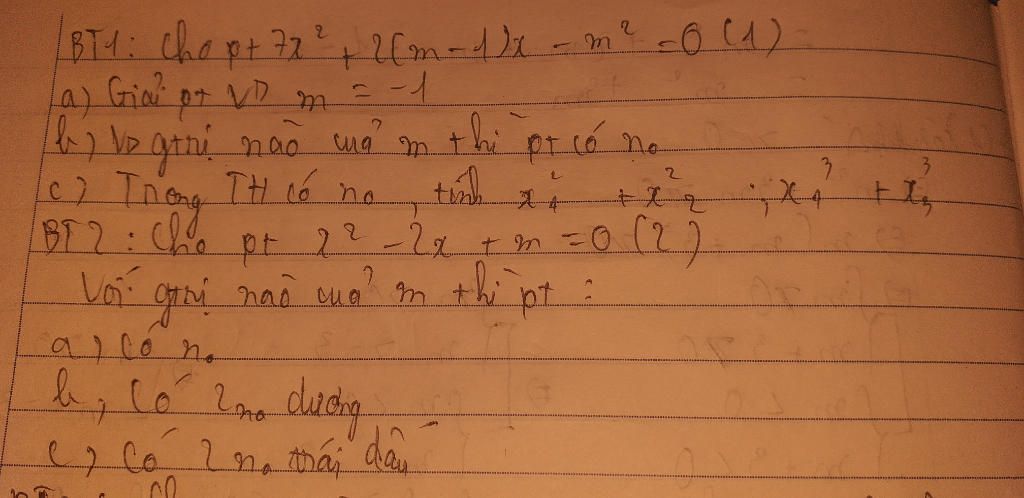 BT1: Cho pt 7x² + 2(m-1)x - m² = 0 (1)
a) Giải pt VD m = -1
b) VD gtrị nào của m thì pt có no
c) Trong TH có no, tính x₁² + x₂² ; x₁³ + x₂³
BT2: Cho pt x² - 2x + m = 0 (2)
Với gtrị nào của m thì pt :
a, Có no
b, Có 2 no dương
c, Có 2 no trái dấu